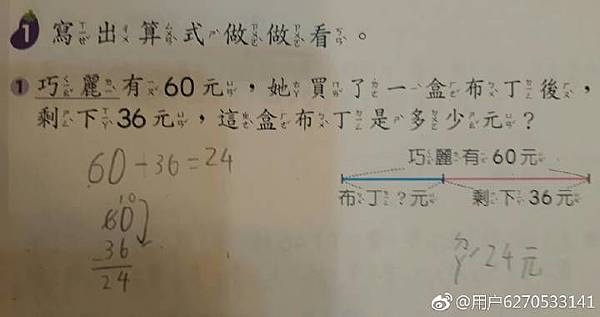 1 寫出算式做做看。
1 巧麗有60元，她買了一盒布丁後，
剩下36元，這盒布丁是多少元？
60-36=24
巧麗有60元
布丁？元 剩下36元
10
60
-36
24
ㄉㄚˊ 24元
@用户6270533141